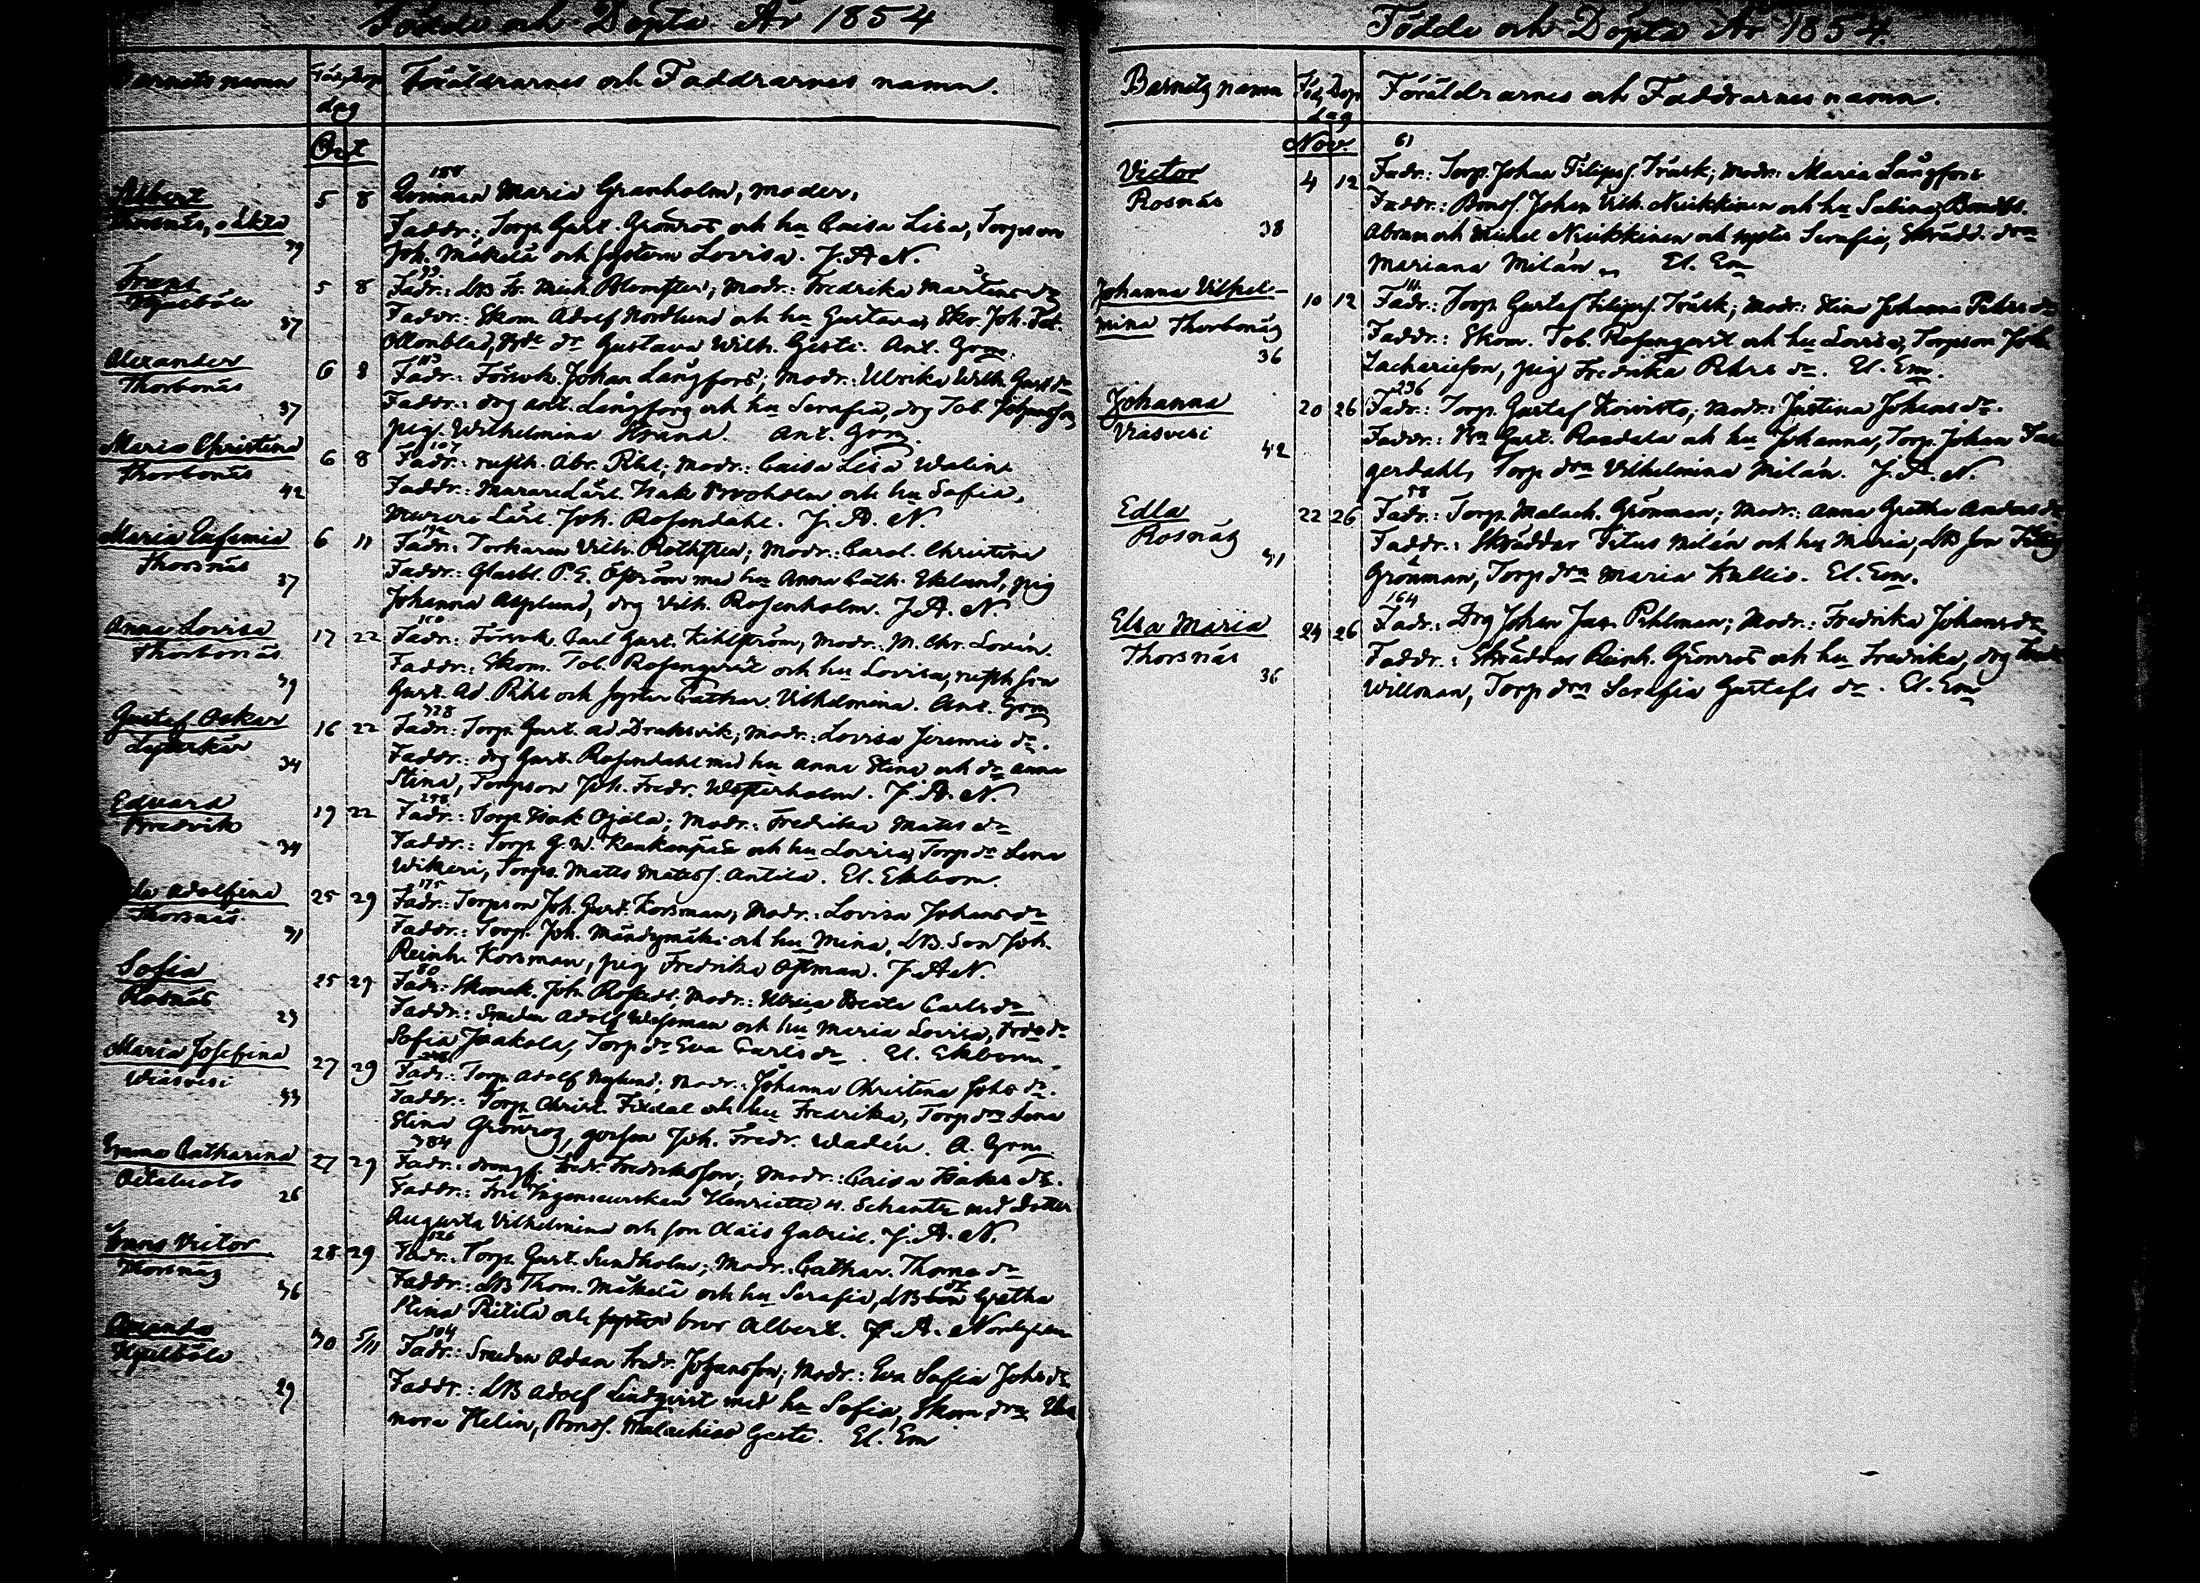 Födde och Döpta År 1854
Barnets namn Föd. Dop dag Föräldrarnes och Faddrarnes namn.
Oct
188
Albert 5 8 Qvinnan Maria Granholm, moder.
Thorsnäs, oäkta Faddr.: Torp. Gust. Grönros och hu Caisa Lisa, Torpson
39 Joh. Mäkelä och systern Lovisa. J. A. N.
Frans 5 8 Fadr.: LB Fr. Mich. Blomster; Modr.: Fredrika Mårtens dr
37 Faddr.: Skom. Adolf Nordlund och hu Gustava, Skr. Joh. Tob.
Gustava Wilh. Geste. Ant. Grm.
113
Alexander 6 8 Fadr.: Försvk. Johan Långfors; Modr.: Ulrika Wilh. Gust dr
Thorbonäs Faddr.: drg Ant. Långfors och hu Serafia, drg Tob. Johansson
37 pig. Wilhelmina Strand. Ant. Grm.
107
Maria Christina 6 8 Fadr.: rusth. Abr. Pihl; Modr.: Caisa Lisa Walin
Thorbonäs Faddr.: Murare Lärl. Isak Broholm och hu Sofia,
42 Murare Lärl. Joh. Rosendahl. J. A. N.
Maria Eufemia 6 11 Fadr.: Torkaren Vilh. Rothsten; Modr.: Carol. Christina
Thorsnäs Faddr.: Glasbl. P. E. Öström med hu Anna Cath. Eklund, pig
37 Johanna Asplund, drg Vilh. Rosenholm. J. A. N.
110
Anna Lovisa 17 22 Fadr.: Försvk. Carl Gust. Kihlström; Modr.: M. Chr. Lovén.
Thorbonäs Faddr.: Skom. Tob. Rosenqvist och hu Lovisa, rusth son
39 Gust. Ad. Pihl och syster Cathar. Vilhelmina. Ant. Grm
328
Gustaf Oskar 16 22 Fadr.: Torp. Gust. Ad. Draksvik; Modr.: Lovisa Jeremie dr.
Lyttskär Faddr.: drg Gust. Rosendahl med hu Anna Stina och dr Anna
34 Stina, Torpson Joh. Fredr. Westerholm. J. A. N.
278
Edvard 19 22 Fadr.: Torp Isak Ojala; Modr.: Fredrika Matts dr
Bredvik Faddr.: Torp. G. W. Kenkenpää och hu Lovisa, Torp dr Lena
34 Wikeri, Torps. Matts Matss. Antila. El. Ekbom.
175
Adolfina 25 29 Fadr.: Torpson Joh. Gust. Korsman; Modr.: Lovisa Johans dr
Thorsnäs Faddr.: Torp. Joh. Mändymäki och hu Mina, LB. Son Joh.
31 Reinh. Korsman, pig Fredrika Östman. J. A. N.
80
Sofia 25 29 Fadr.: Joh. Rosted; Modr.: Ulrica Beata Carls dr
Rosnäs Faddr.: Smeden Adolf Wessman och hu Maria Lovisa, Brdr dr
23 Sofia Jaakola, Torp dr Eva Carls dr. El. Ekbom
Maria Josefina 27 29 Fadr.: Torp. Adolf Nylund; Modr.: Johanna Christina Johs dr.
Viasvesi Faddr.: Torp. Christ. Fixdal och hu Fredrika, Torp dra Lena
33 Stina Grönroos, gossen Joh. Fredr. Wadén. A. Grm.
384
Emma Catharina 27 29 Fadr.: Fredr. Fredriksson; Modr.: Caisa Isaks dr.
26 Faddr.: Fru Ingeneurskan Henriette v. Schantz med dotter
Augusta Vilhelmina och son Claës Gabriel. J. A. N.
126
Frans Victor 28 29 Fadr.: Torp. Gust. Sundholm; Modr.: Cathar. Thoma dr
Thorsnäs Faddr.: LB Thom. Mäkelä och hu Serafia, LB dr Gretha
36 Stina Pitilä och bror Albert. J. A.
104
Amanda 30 5/11 Fadr.: Smeden Adam Fredr. Johansson; Modr.: Eva Sofia Johs dr
Faddr.: LB Adolf Lindqvist med hu Sofia, Skom dra Eleo
29 nora Helin, Bonds. Malachias Geste. El. Em
Födde och Döpta År 1854.
Barnets namn Föd. Dop dag Föräldrarnes och Faddrarnes namn.
Nov.
61
Victor 4 12 Fadr.: Torp. Johan Filipss. Träsk; Modr.: Maria Långfors
Rosnäs Faddr.: Bonds. Johan Vilh. Niukkinen och hu Sabina, Bonds.
38 Abram och Michel Niukkinen och syster Serafia, Skrädd. dra
Mariana Milán. El. Em
111
Johanna Vilhel- 10 12 Fadr.: Torp. Gustaf Filipss. Träsk; Modr.: Stina Johanna Pehrs dr
mina Thorbonäs Faddr.: Skom. Tob. Rosenqvist och hu Lovisa, Torpson Joh.
36 Zachariesson, pig Fredrika Pehrs dr. El. Em.
236
Johanna 20 26 Fadr.: Torp. Gustaf Koivisto; Modr.: Justina Johans dr.
Viasvesi Faddr.: Gust. Raadala och hu Johanna, Torp. Johan Fa-
42 gerdahl, Torp dra Vilhelmina Milán. J. A. N.
58
Edla 22 26 Fadr.: Torp. Malach. Grönman; Modr.: Anna Gretha Anders dr
Rosnäs Faddr.: Skräddar Titus Milán och hu Maria, LB son
31 Grönman, Torp dra Maria Kullis. El. Em.
164
Elsa Maria 24 26 Fadr.: Drg Johan Jac. Pihlman; Modr.: Fredrika Johans dr
Thorsnäs Faddr.: Skräddar Reinh. Grönros och hu Fredrika, drg
36 Willman, Torp dra Serafia Gustafs dr. El. Em